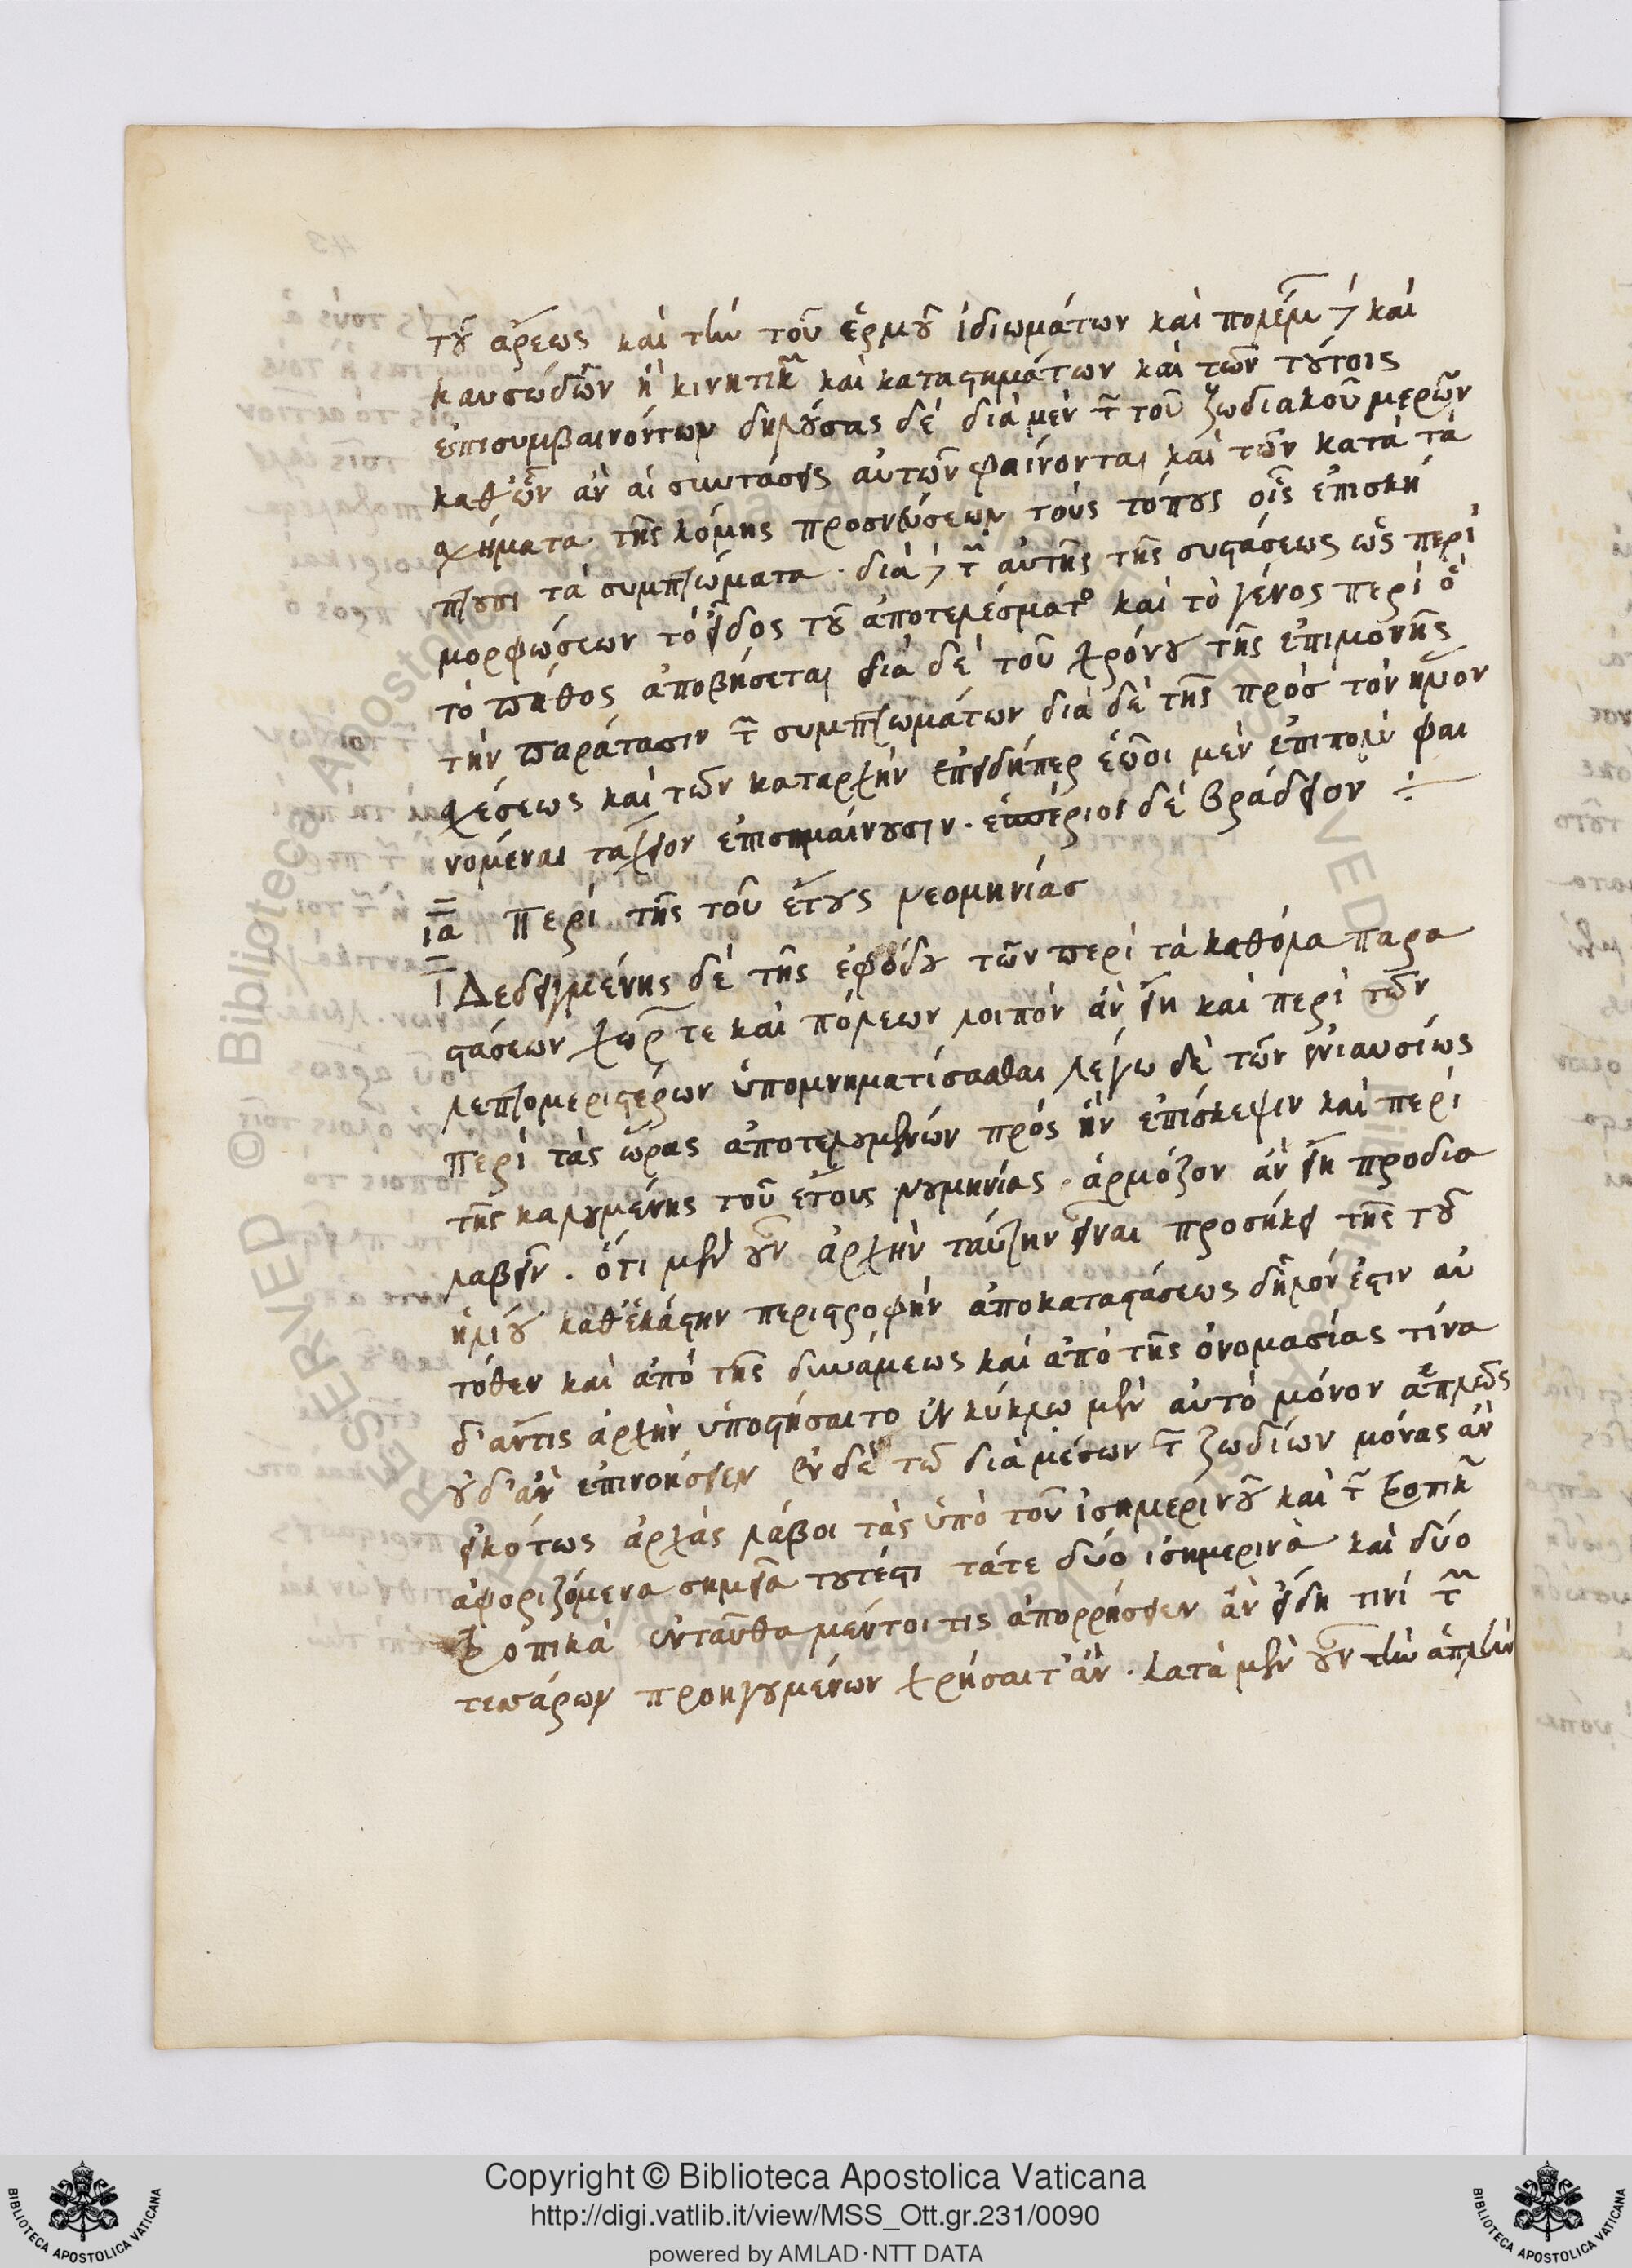 τοῦ ἄρεως καὶ τὴν τοῦ ἑρμοῦ ἰδιωμάτων καὶ πολέμ δὲ καὶ
καυσώδων ἢ κινητικ καὶ καταστημάτων καὶ τῶν τούτοις
ἐπισυμβαινόντων δηλούσας δὲ διὰ μὲν τ τοῦ ζωδιακοῦ μερῶν
καθ' ὧν ἂν αἱ συντάσεις αὐτῶν φαίνονται καὶ τῶν κατὰ τὰ
σχήματα τῆς κόμης προσνεύσεων τοὺς τόπους οἷς ἐπισκή
πτουσι τὰ συμπτώματα · διὰ δὲ τ αὐτῆς τῆς συστάσεως ὡς περὶ
μορφώσεων τὸ εἶδος τοῦ ἀποτελέσματο καὶ τὸ γένος περὶ ὃ
τὸ πάθος ἀποβήσεται διὰ δὲ τοῦ χρόνου τῆς ἐπιμονῆς
τὴν παράτασιν τ συμπτωμάτων διὰ δὲ τῆς πρὸσ τὸν ἥλιον
σχέσεως καὶ τῶν καταρχὴν ἐπειδήπερ ἑῷοι μὲν ἐπιπολὺ φαι
νόμεναι τάχειον ἐπισημαίνουσιν · ἑσπέριοι δὲ βράδειον ÷
ια Περὶ τῆς τοῦ ἔτους νεομηνίασ
ι Δεδειγμένης δὲ τῆς ἐφόδου τῶν περὶ τὰ καθόλα παρα
στάσεων χωρ τε καὶ πόλεων λοιπὸν ἂν εἴη καὶ περὶ τῶν
λεπτομεριστέρων ὑπομνηματίσασθαι λέγω δὲ τῶν ἐνιαυσίως
περὶ τὰς ὥρας ἀποτελουμένων πρὸς ἣν ἐπίσκεψιν καὶ περὶ
τῆς καλουμένης τοῦ ἔτους νουμηνίας · ἁρμόζον ἂν εἴη προδια
λαβεῖν . ὅτι μὲν οὖν ἀρχὴν ταύτην εἶναι προσήκει τῆς τοῦ
ἡλίου καθ' ἑκάστην περιστροφὴν ἀποκαταστάσεως δῆλόν ἐστιν αὐ
τόθεν καὶ ἀπὸ τῆς δυνάμεως καὶ ἀπὸ τῆς ὀνομασίας τίνα
δ' ἄν τις ἀρχὴν ὑποστήσαιτο ἐν κύκλω μὲν αὐτὸ μόνον ἁπλῶς
οὐδ' ἂν ἐπινοήσειεν ἐν δὲ τῶ διὰ μέσων τ ζωδίων μόνας ἂν
εἰκότως ἀρχὰς λάβοι τὰς ὑπὸ τοῦ ἰσημερινοῦ καὶ τ τροπικ
ἀφοριζόμενα σημεῖα τουτέστι τά τε δύο ἰσημερινὰ καὶ δύο
τροπικὰ ἐνταῦθα μέντοι τις ἀπορρήσειεν ἂν εἴδη τινὶ τ
τεσσάρων προηγουμένων χρήσαιτ' ἄν · κατὰ μὲν οὖν τὴν ἁπλὴν